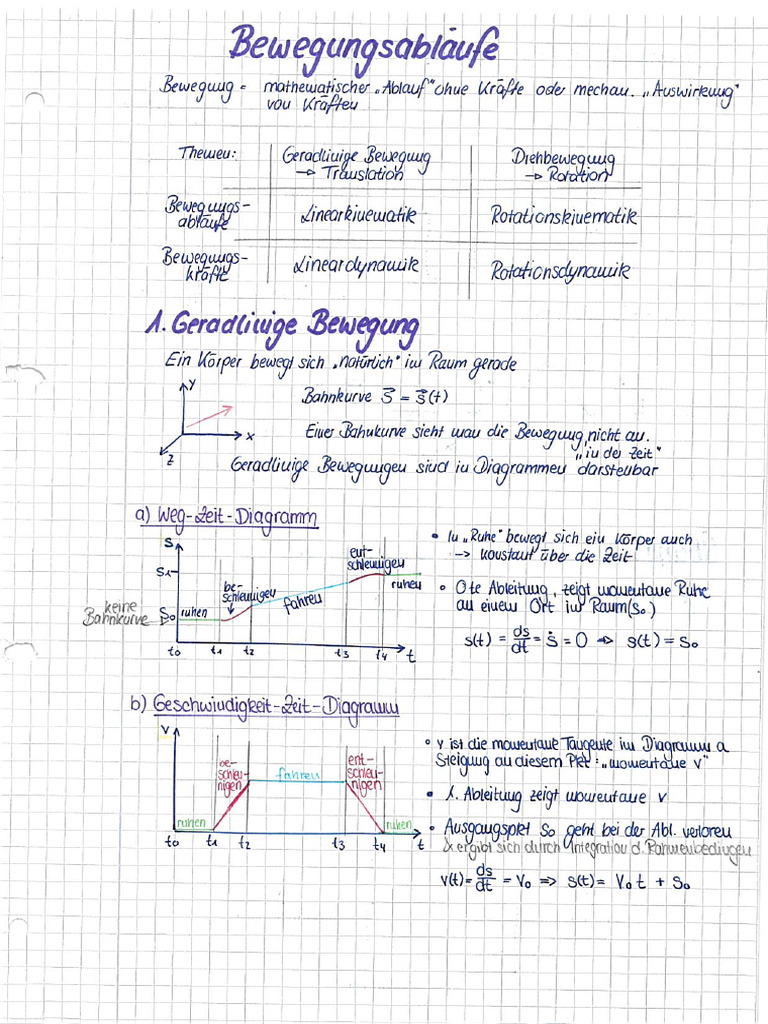 Bewegungsabläufe
Bewegung = mathematischer „Ablauf" ohne Kräfte oder mechan. „Auswirkung"
von Kräften
Themen: Geradlinige Bewegung Drehbewegung
→ Translation → Rotation
Bewegungs- Linearkinematik Rotationskinematik
abläufe
Bewegungs- Lineardynamik Rotationsdynamik
kräfte
1. Geradlinige Bewegung
Ein Körper bewegt sich „natürlich" im Raum gerade
y
x
z
Bahnkurve s⃗ = s⃗(t)
Einer Bahnkurve sieht man die Bewegung nicht an.
„in der Zeit"
Geradlinige Bewegungen sind in Diagrammen darstellbar
a) Weg-Zeit-Diagramm
s
s₁
s₀
keine
Bahnkurve
ruhen
be-
schleunigen
fahren
ent-
schleunigen
ruhen
t₀ t₁ t₂ t₃ t₄ t
• In „Ruhe" bewegt sich ein Körper auch
→ konstant über die Zeit
• 0te Ableitung, zeigt momentane Ruhe
an einem Ort im Raum (s₀)
s(t) = ds/dt = ṡ = 0 ⇒ s(t) = s₀
b) Geschwindigkeit-Zeit-Diagramm
v
ruhen
be-
schleu-
nigen
fahren
ent-
schleu-
nigen
ruhen
t₀ t₁ t₂ t₃ t₄ t
• v ist die momentane Tangente im Diagramm a
Steigung an diesem Pkt: „momentane v"
• 1. Ableitung zeigt momentane v
• Ausgangspkt s₀ geht bei der Abl. verloren
& ergibt sich durch Integration d. Rahmenbedingen
v(t) = ds/dt = v₀ ⇒ s(t) = v₀ t + s₀